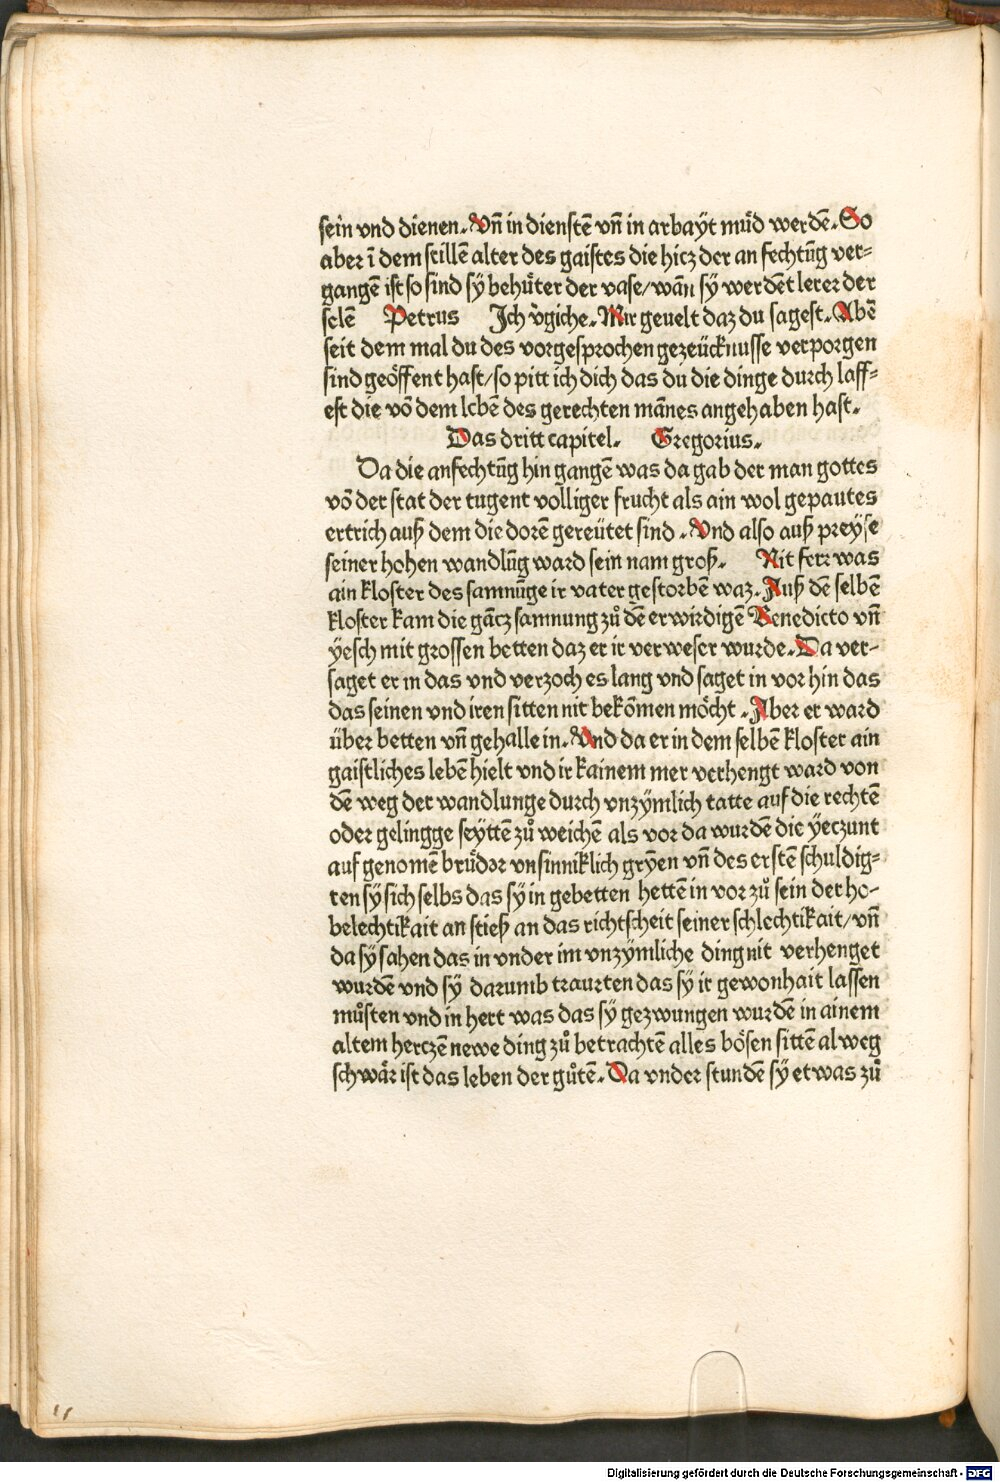 sein vnd dienen. Vñ in dienstē vñ in arbaÿt mud werdē. So
aber ī dem stillē alter des gaistes die hicz der an fechtūg ver=
gangē ist so sind sÿ behuͤter der vase/ wān sÿ werdēt lerer der
selē Petrus Ich v̈giche. Mir geuelt daz du sagest. Abē
seit dem mal du des vorgesprochen gezeücknusse verporgen
sind geöffent hast/ so pitt ich dich das du die dinge durch laff=
est die vō dem lebē des gerechten mānes angehaben hast.
Das dritt capitel. Gregorius.
Da die anfechtūg hin gangē was da gab der man gottes
vō der stat der tugent volliger frucht als ain wol gepautes
ertrich auß dem die dorē gereütet sind. Vnd also auß preÿse
seiner hohen wandlūg ward sein nam groß. Nit ferr was
ain kloster des samnūge ir vater gestorbē waz. Auß dē selbē
kloster kam die gācz samnung zuͦ dē erwirdigē Benedicto vñ
ÿesch mit grossen betten daz er ir verweser wurde. Da ver-
saget er in das vnd verzoch es lang vnd saget in vor hin das
das seinen vnd iren sitten nit bekōmen möcht. Aber er ward
über betten vñ gehalle in. Vnd da er in dem selbē kloster ain
gaistliches lebē hielt vnd ir kainem mer verhengt ward von
dē weg der wandlunge durch vnzÿmlich tatte auf die rechtē
oder gelingge seÿttē zuͦ weichē als vor da wurdē die ÿeczunt
auf genomē bruͤder vnsinniklich grÿen vñ des erstē schuldig=
ten sÿ sich selbs das sÿ in gebetten hettē in vor zuͦ sein der ho-
belechtikait an stieß an das richtscheit seiner schlechtikait/ vñ
da sÿ sahen das in vnder im vnzÿmliche ding nit verhenget
wurdē vnd sÿ darumb traurten das sÿ ir gewonhait lassen
muͦsten vnd in hert was das sÿ gezwungen wurdē in ainem
altem herczē newe ding zuͦ betrachtē alles bösen sittē alweg
schwär ist das leben der guͦtē. Da vnder stundē sÿ etwas zuͦ
Digitalisierung gefördert durch die Deutsche Forschungsgemeinschaft - DFG